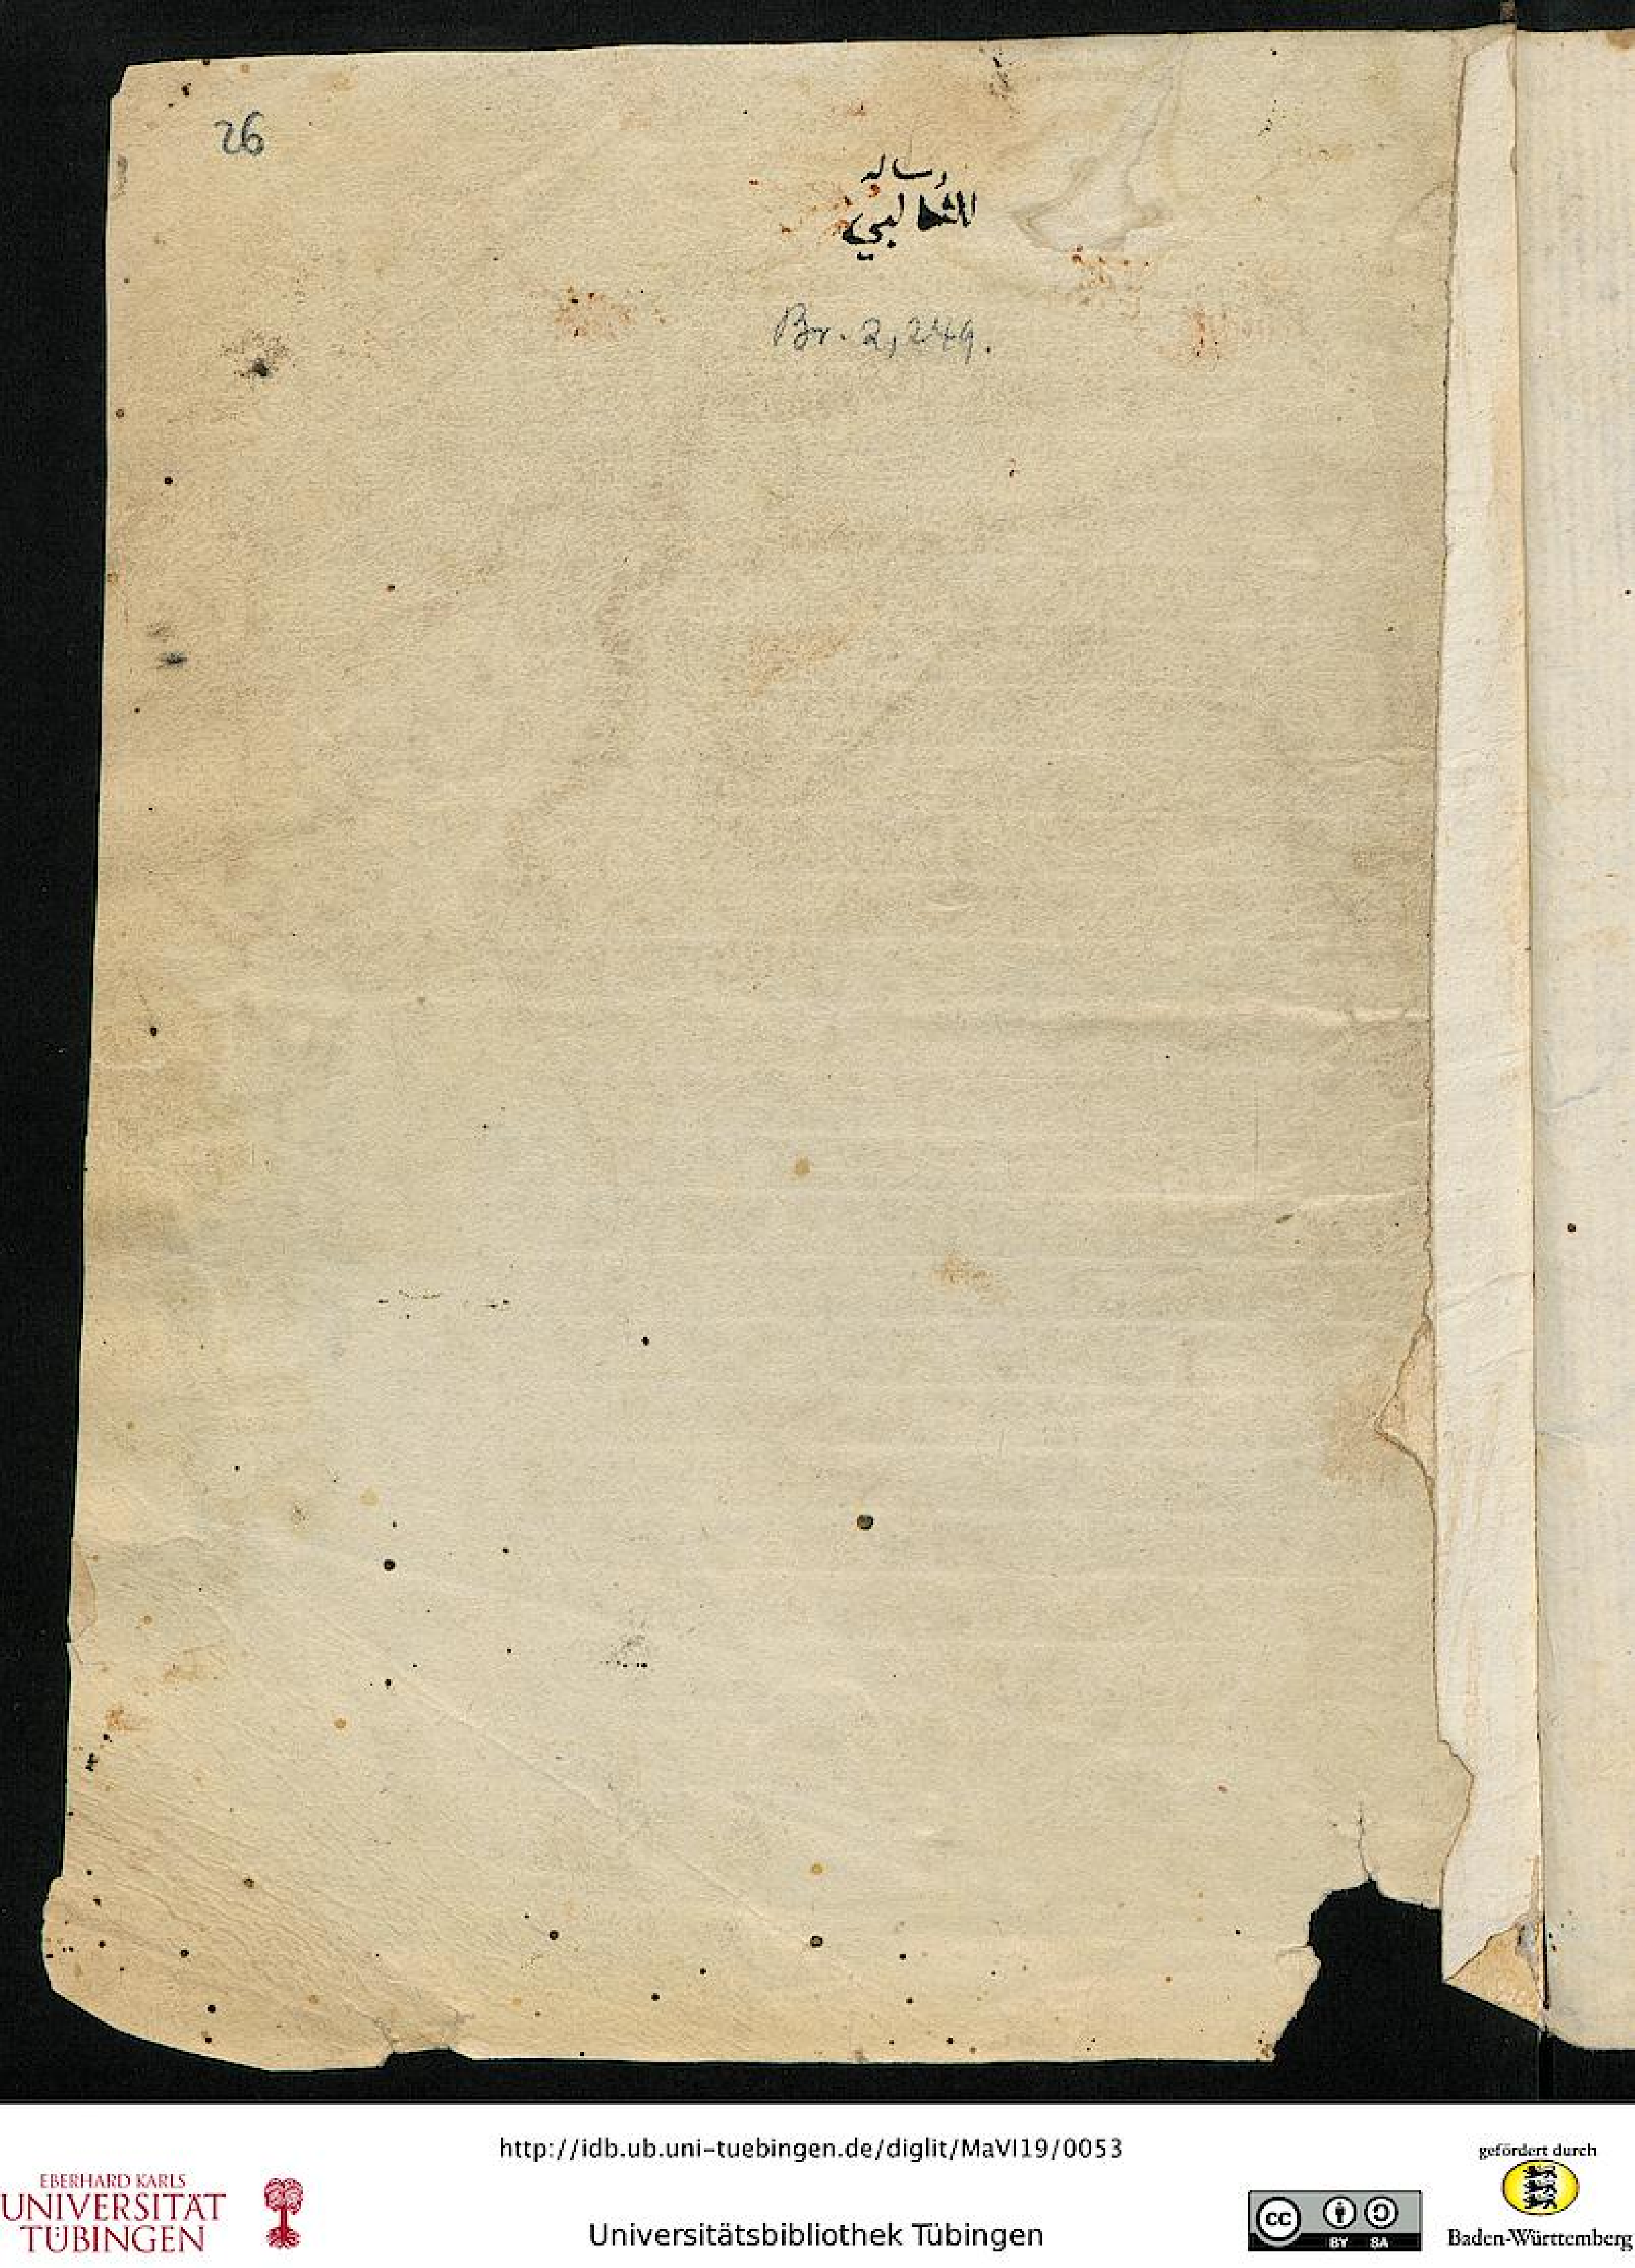 26
رساله
للثعالبي
Br. 2, 249.
http://idb.ub.uni-tuebingen.de/diglit/MaVI19/0053
EBERHARD KARLS
UNIVERSITÄT
TÜBINGEN
Universitätsbibliothek Tübingen
cc
BY SA
gefördert durch
Baden-Württemberg